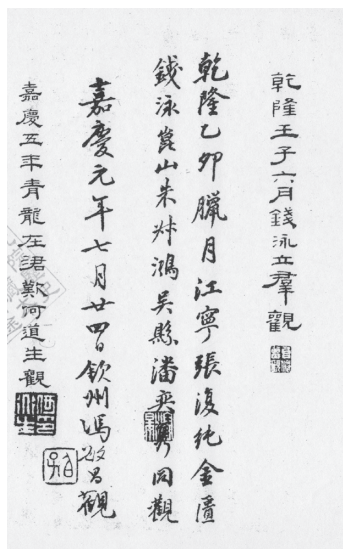 乾隆壬子六月錢泳立羣觀
乾隆乙卯臘月江寧張復純金匱
錢泳崑山朱鴻吳縣潘奕雋同觀
嘉慶元年七月廿四日欽州馮敏昌觀
嘉慶五年青龍在涒鄭何道生觀